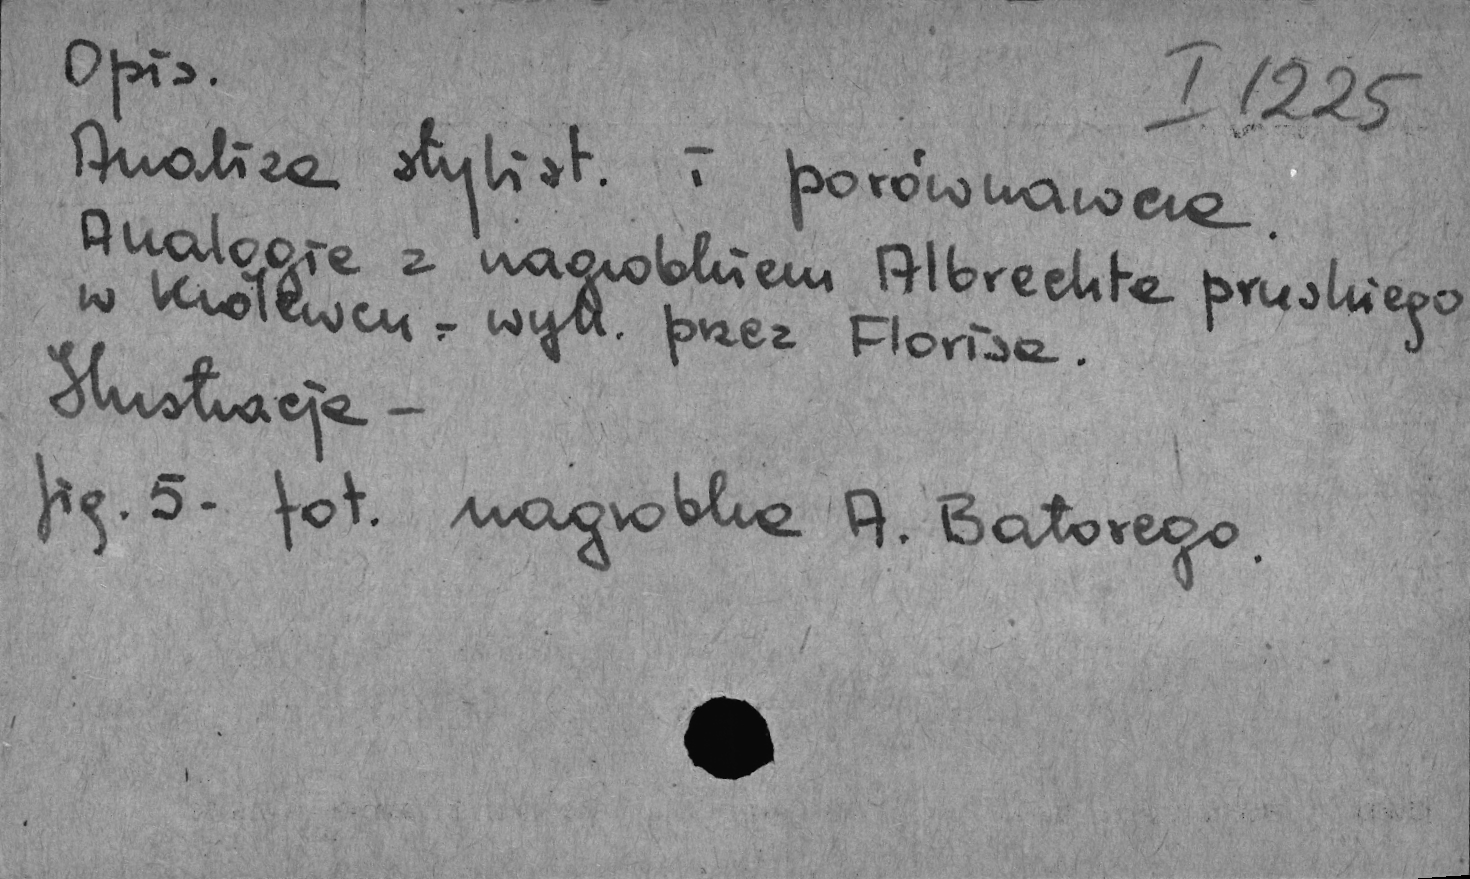 I 1225
Opis.
Analiza stylist. i porównawcza.
Analogie z nagrobkiem Albrechta pruskiego
w Królewcu - wyk. przez Florisa.
Ilustracje -
fig. 5 - fot. nagrobka A. Batorego.